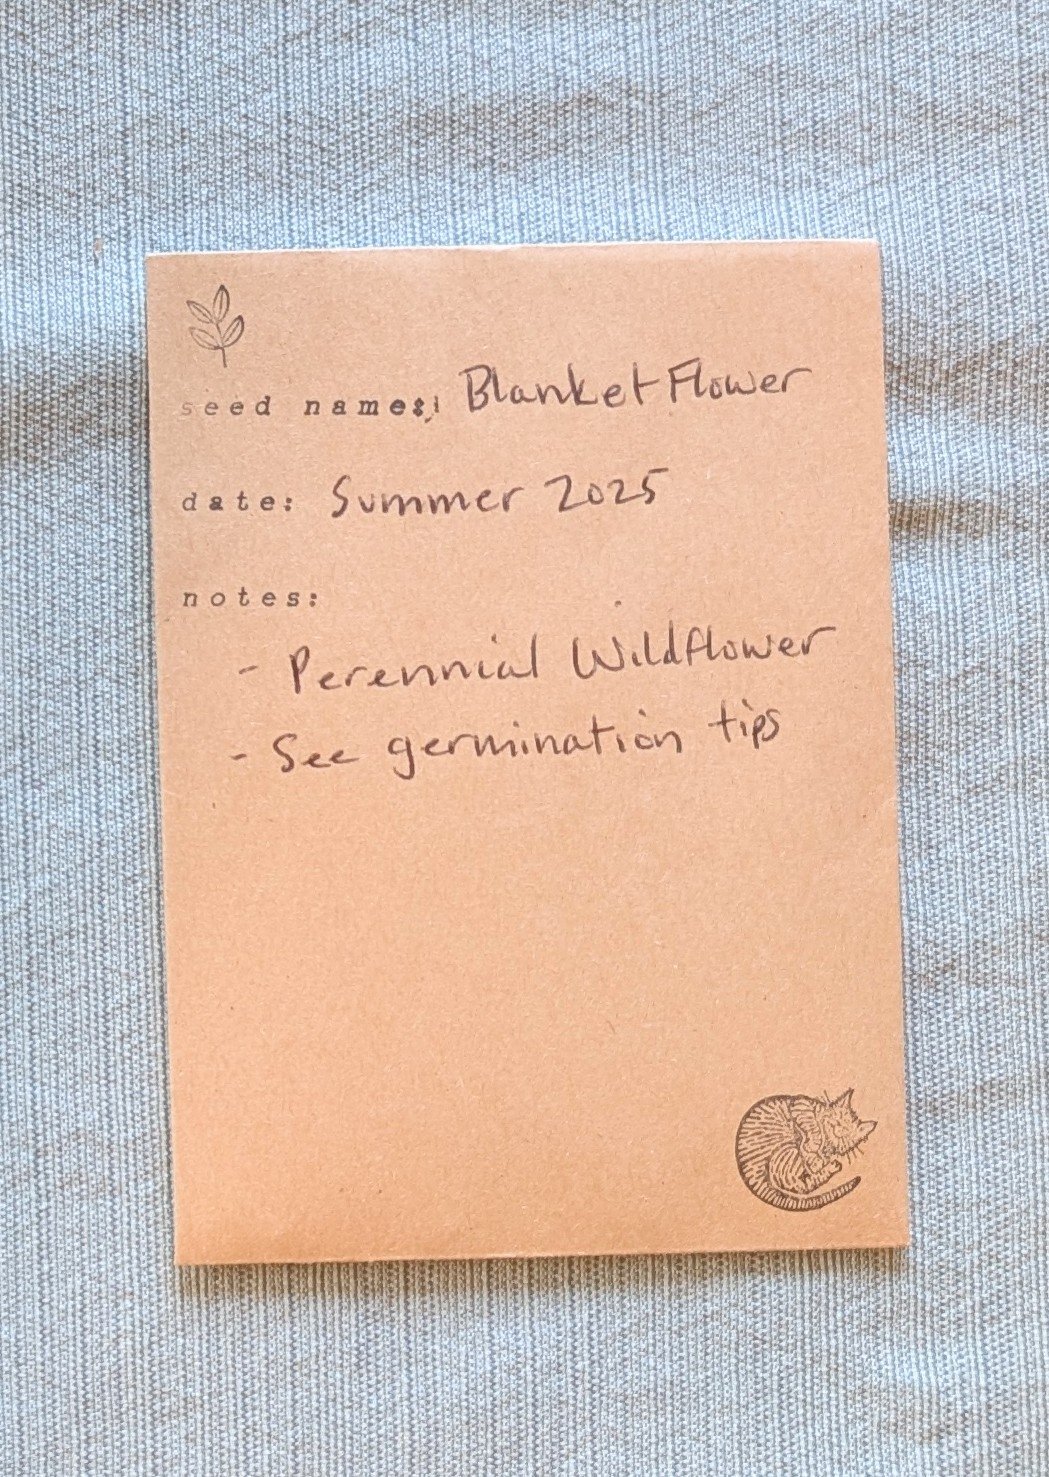 seed name: Blanket Flower
date: Summer 2025
notes:
- Perennial Wildflower
- See germination tips